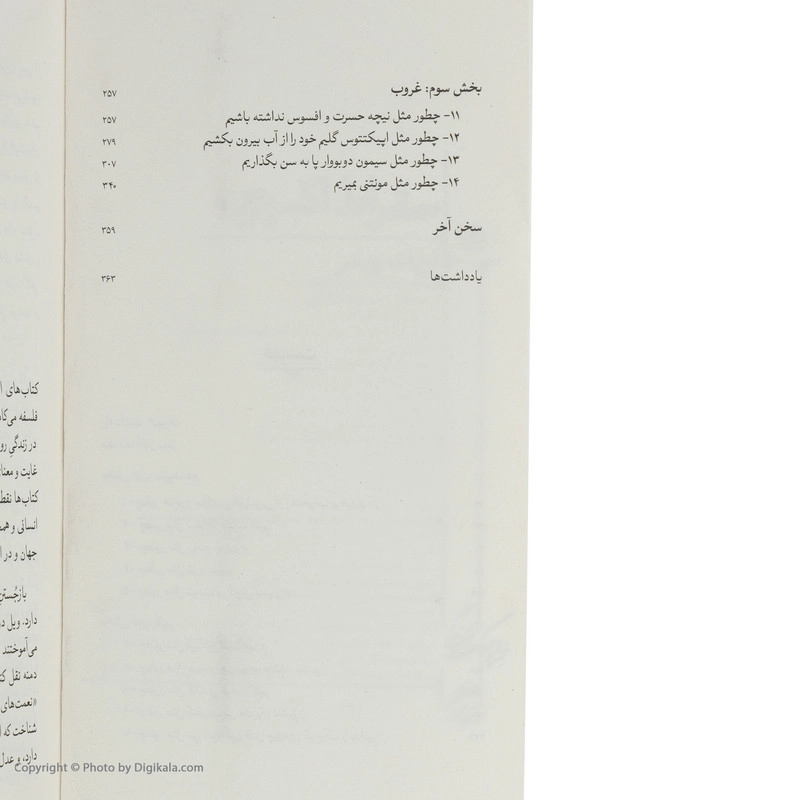 بخش سوم: غروب ۲۵۷
۱۱- چطور مثل نیچه حسرت و افسوس نداشته باشیم ۲۵۷
۱۲- چطور مثل اپیکتتوس گلیم خود را از آب بیرون بکشیم ۲۷۹
۱۳- چطور مثل سیمون دوبووار پا به سن بگذاریم ۳۰۷
۱۴- چطور مثل مونتنی بمیریم ۳۴۰
سخن آخر ۳۵۹
یادداشت‌ها ۳۶۳
کتاب‌های
فلسفه
در زندگی
غایت و
کتاب‌ها
انسانی و
جهان و در
دارد. ویل
می‌آموختند
دمنه نقل
«نعمت‌های
شناخت که
دارد، و عدل
Copyright © Photo by Digikala.com